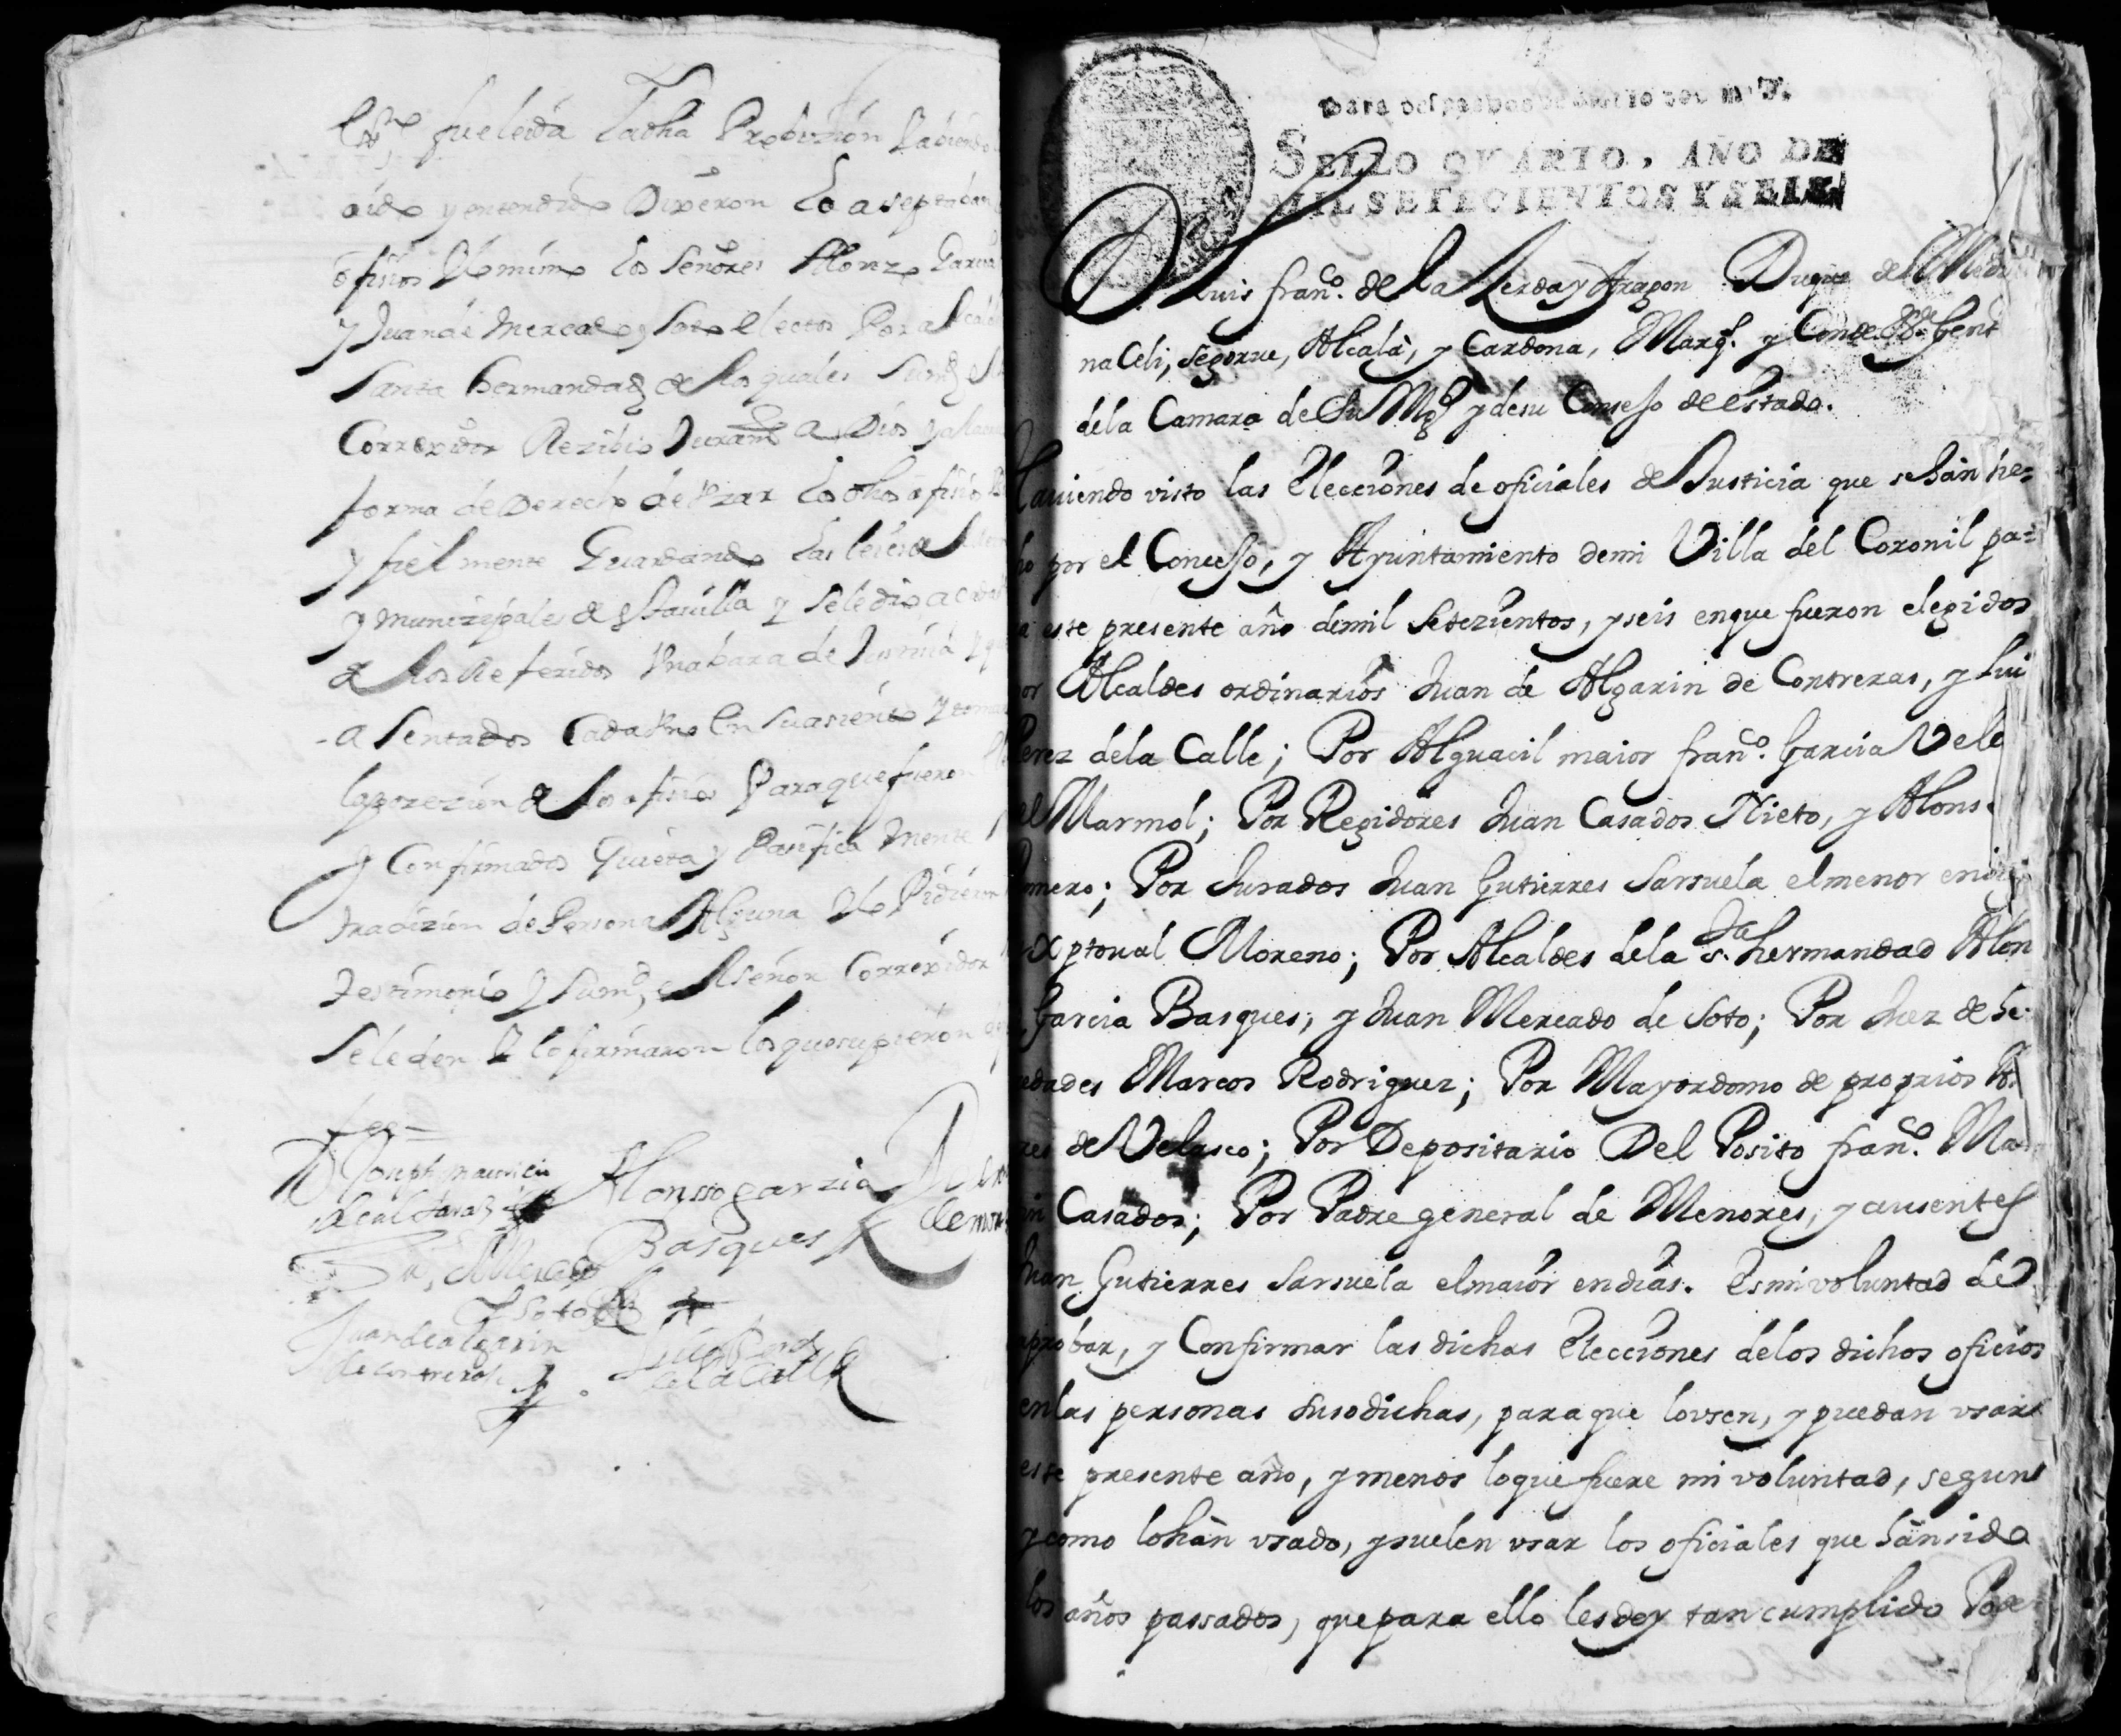 fue leida La dha Probision Y abiendo
oido y entendido Dixeron Lo aseptaban
ofisios Y lo mismo los Señores Alonzo Garcia
y Juan de Mercado y Soto electos Por alcal
Santa hermandad de los quales Su md el S
Corregidor Rezibio Juramto a Dios y a la
forma de Derecho de Vzar Los dhos ofisios
y fielmente Guardando Las leies
y Munizipales de esta villa y se le dio a cada
de los Referidos Vna bara de Justicia Y q
asentados Cada Vno En su asiento Y toma
la posezion de los ofisios Para que fueron
y Confirmados Quieta y Pasifica Mente
tradizion de Persona Alguna Y lo Pidieron
testimonio Y Su md el Señor Corregidor
Se le den Y lo firmaron los que supieron
fee =
D Joseph Mauricio
Alonsso garzia
Basques
Mercado
Y Soto
Juan de algarin
de contreras
Luis Perez
de la Calle
para despachos de oficio dos mrs.
SELLO QVARTO, AÑO DE
MIL SETECIENTOS Y SEIS.
D Luis franco. de la Zerda y Aragon Duque de Medi
na Celi, Segorue, Alcalá, y Cardona, Marqs. y Conde &a. Gent
de la Camara de Su Mgd y de su Consejo de estado.
Hauiendo visto las Elecciones de oficiales de Justicia que se hàn he=
ho por el Concejo, y Ayuntamiento de mi Villa del Coronil pa=
a este presente año de mil Setezientos, y seis en que fueron elegidos
or Alcaldes ordinarios Juan de Algarin de Contreras, y Lui
Perez de la Calle; Por Alguacil maior franco. Garcia Vele
del Marmol; Por Regidores Juan Casados Nieto, y Alons
omero; Por Jurados Juan Gutierres Sarsuela el menor en di
Xptoual Moreno; Por Alcaldes de la Sta. hermandad Alon
Garcia Basques, y Juan Mercado de Soto; Por Juez de he
edades Marcos Rodriguez; Por Mayordomo de proprios
res de Velasco; Por Depositario Del Posito franco. Ma
in Casados; Por Padre general de Menores, y ausentes
Juan Gutierres Sarsuela el maior en dias. Es mi voluntad de
aprobar, y Confirmar las dichas Elecciones de los dichos oficios
en las personas susodichas, para que lo vsen, y puedan vsar
este presente año, y menos lo que fuere mi voluntad, segun
y como lo hàn vsado, y suelen vsar los oficiales que hàn sido
los años passados, que para ello les doy tan cumplido Pode